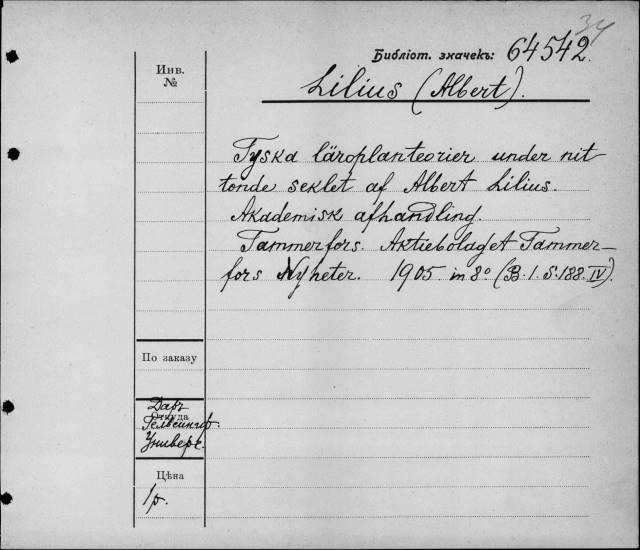 34
Библіот. значекъ: 64542.
Инв. №
Lilius (Albert).
Tyska läroplanteorier under nit
tonde seklet af Albert Lilius.
Akademisk afhandling.
Tammerfors. Aktiebolaget Tammer-
fors Nyheter. 1905. in 8° (B. 1. S. 188. IV).
По заказу
Даръ
Откуда
Гельсингф.
Универс.
Цѣна
1р.